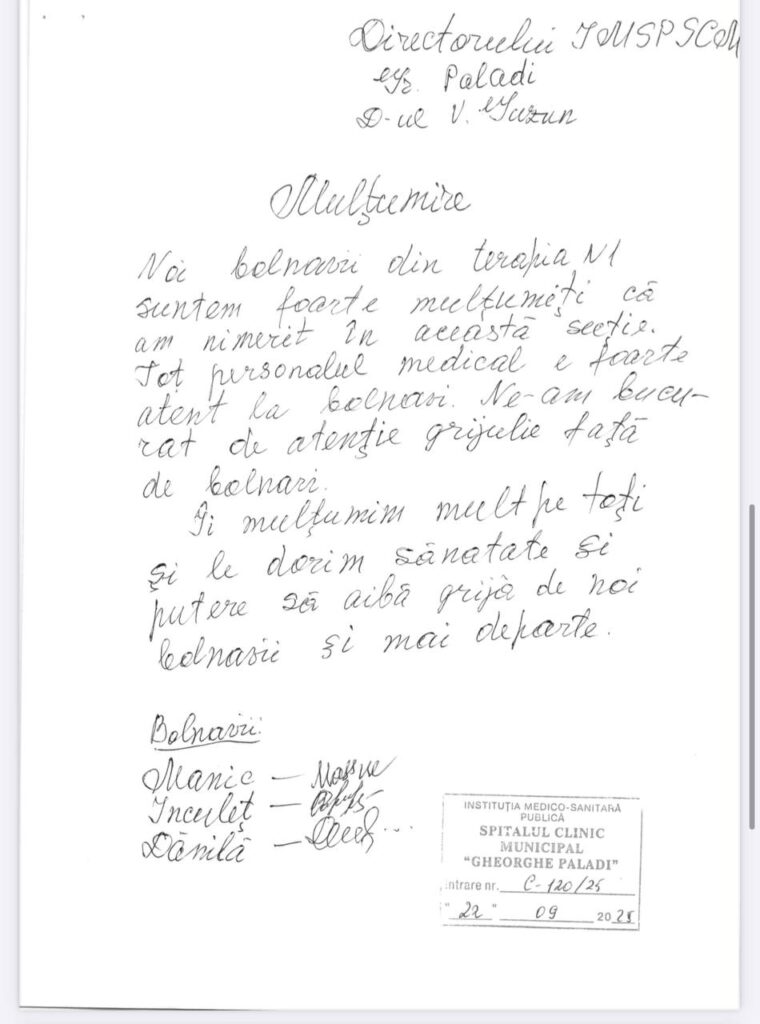 Directorului IMSP SCM
Gr. Paladi
D-ul V. Guzun
Mulțumire
Noi bolnavii din terapia N1
suntem foarte mulțumiți că
am nimerit în această secție.
Tot personalul medical e foarte
atent la bolnavi. Ne-am bucu-
rat de atenție grijulie față
de bolnavi.
Îi mulțumim mult pe toți
și le dorim sănatate si
putere să aibă grijă de noi
bolnavii și mai departe.
Bolnavii:
Manic —
Inculeț —
Dănilă —
INSTITUȚIA MEDICO-SANITARĂ
PUBLICĂ
SPITALUL CLINIC
MUNICIPAL
"GHEORGHE PALADI"
intrare nr. C-120/25
"22" 09 2025